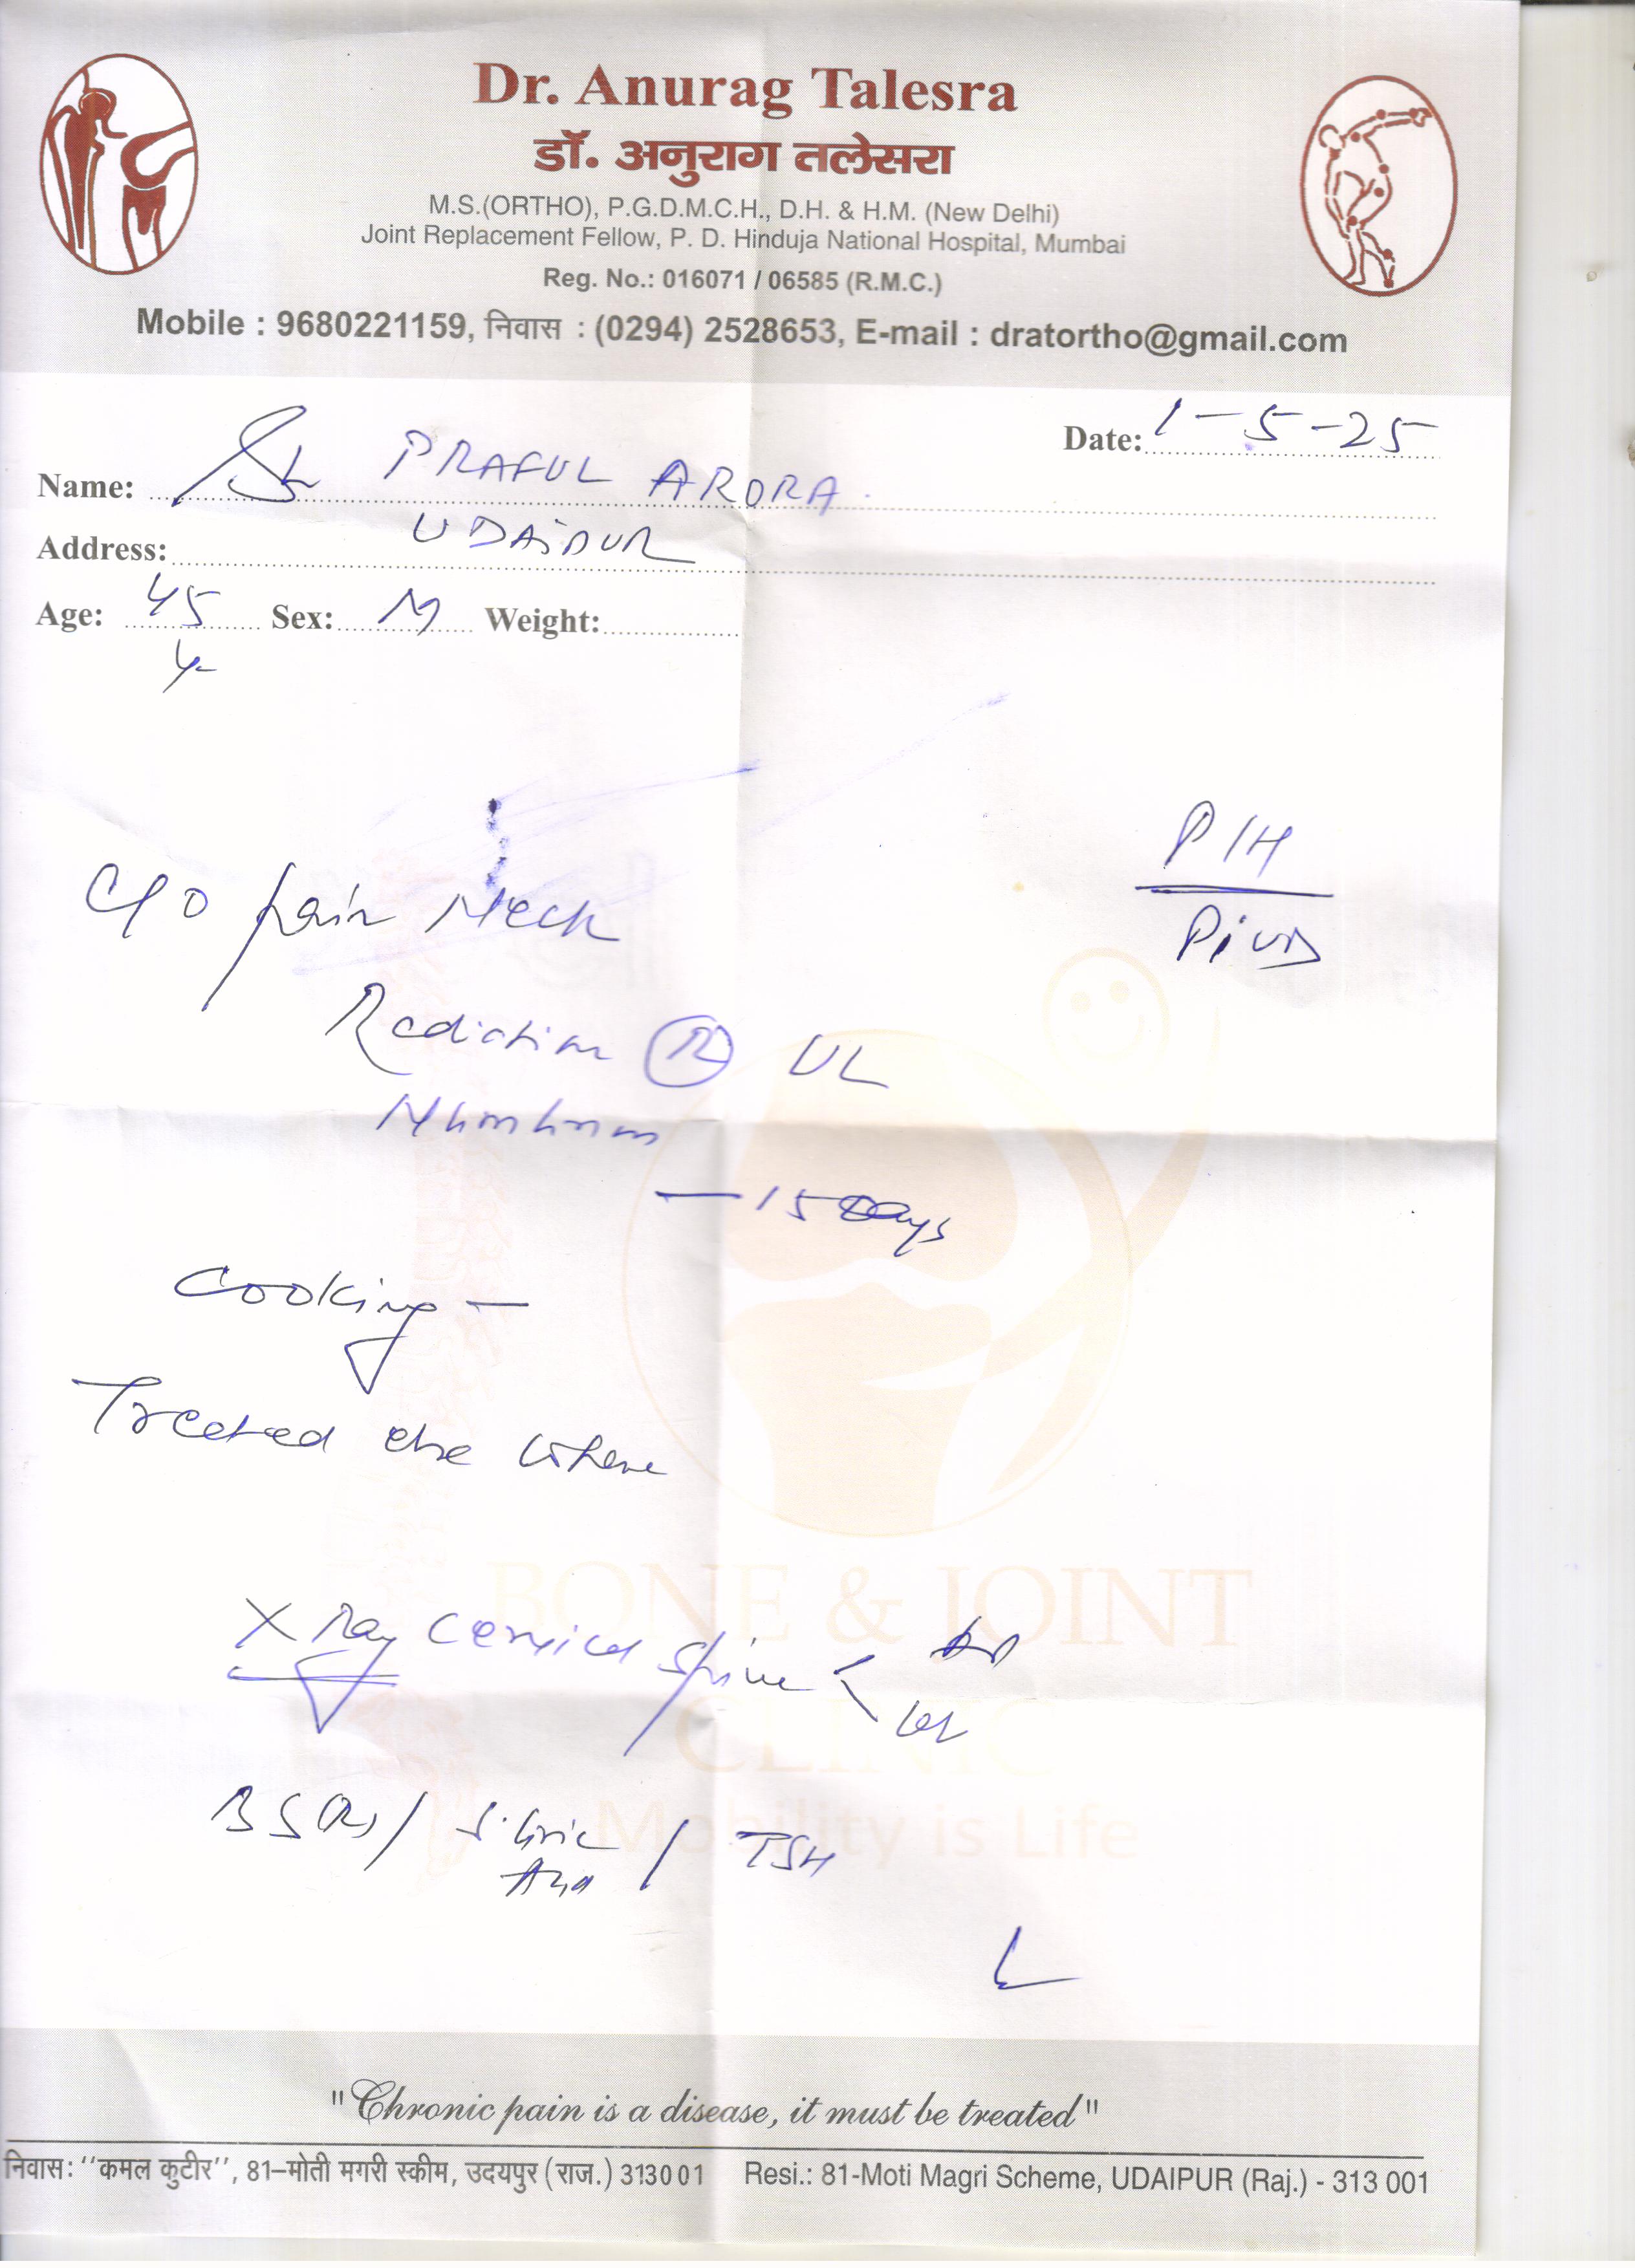 Dr. Anurag Talesra
डॉ. अनुराग तलेसरा
M.S.(ORTHO), P.G.D.M.C.H., D.H. & H.M. (New Delhi)
Joint Replacement Fellow, P. D. Hinduja National Hospital, Mumbai
Reg. No.: 016071 / 06585 (R.M.C.)
Mobile : 9680221159, निवास : (0294) 2528653, E-mail : dratortho@gmail.com
Date: 1-5-25
Name: PRAFUL ARORA
Address: UDAIPUR
Age: 45 Sex: M Weight:
P/H
PIVD
C/O pain Neck
Radiation (R) UL
Numbness
- 15 Days
Cooking -
Treated else where
X Ray Cervical Spine < AP
Lat
BS(R) / S. Uric / TSH
Acid
BONE & JOINT
CLINIC
Mobility is Life
"Chronic pain is a disease, it must be treated"
निवास: ''कमल कुटीर'', 81-मोती मगरी स्कीम, उदयपुर (राज.) 313001 Resi.: 81-Moti Magri Scheme, UDAIPUR (Raj.) - 313 001